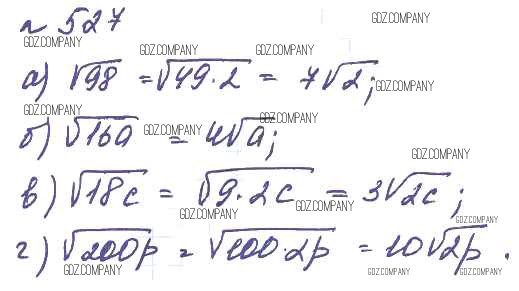 № 527
GDZ.COMPANY
GDZ.COMPANY
GDZ.COMPANY GDZ.COMPANY
а) √98 = √49·2 = 7√2;
GDZ.COMPANY
GDZ.COMPANY
GDZ.COMPANY
б) √16a = 4√a;
GDZ.COMPANY
GDZ.COMPANY
в) √18c = √9·2c = 3√2c;
GDZ.COMPANY GDZ.COMPANY
GDZ.COMPANY
г) √200p = √100·2p = 10√2p.
GDZ.COMPANY GDZ.COMPANY GDZ.COMPANY